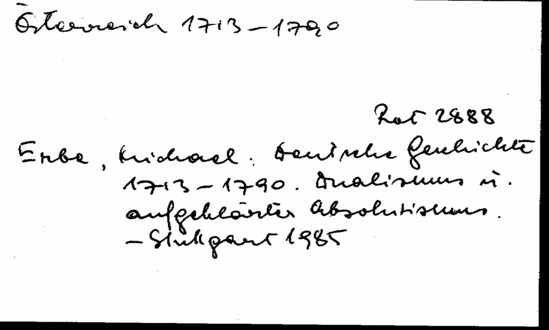 Österreich 1713-1790
Rot 2888
Erbe, Michael. Deutsche Geschichte
1713-1790. Dualismus u.
aufgeklärter Absolutismus.
-Stuttgart 1985